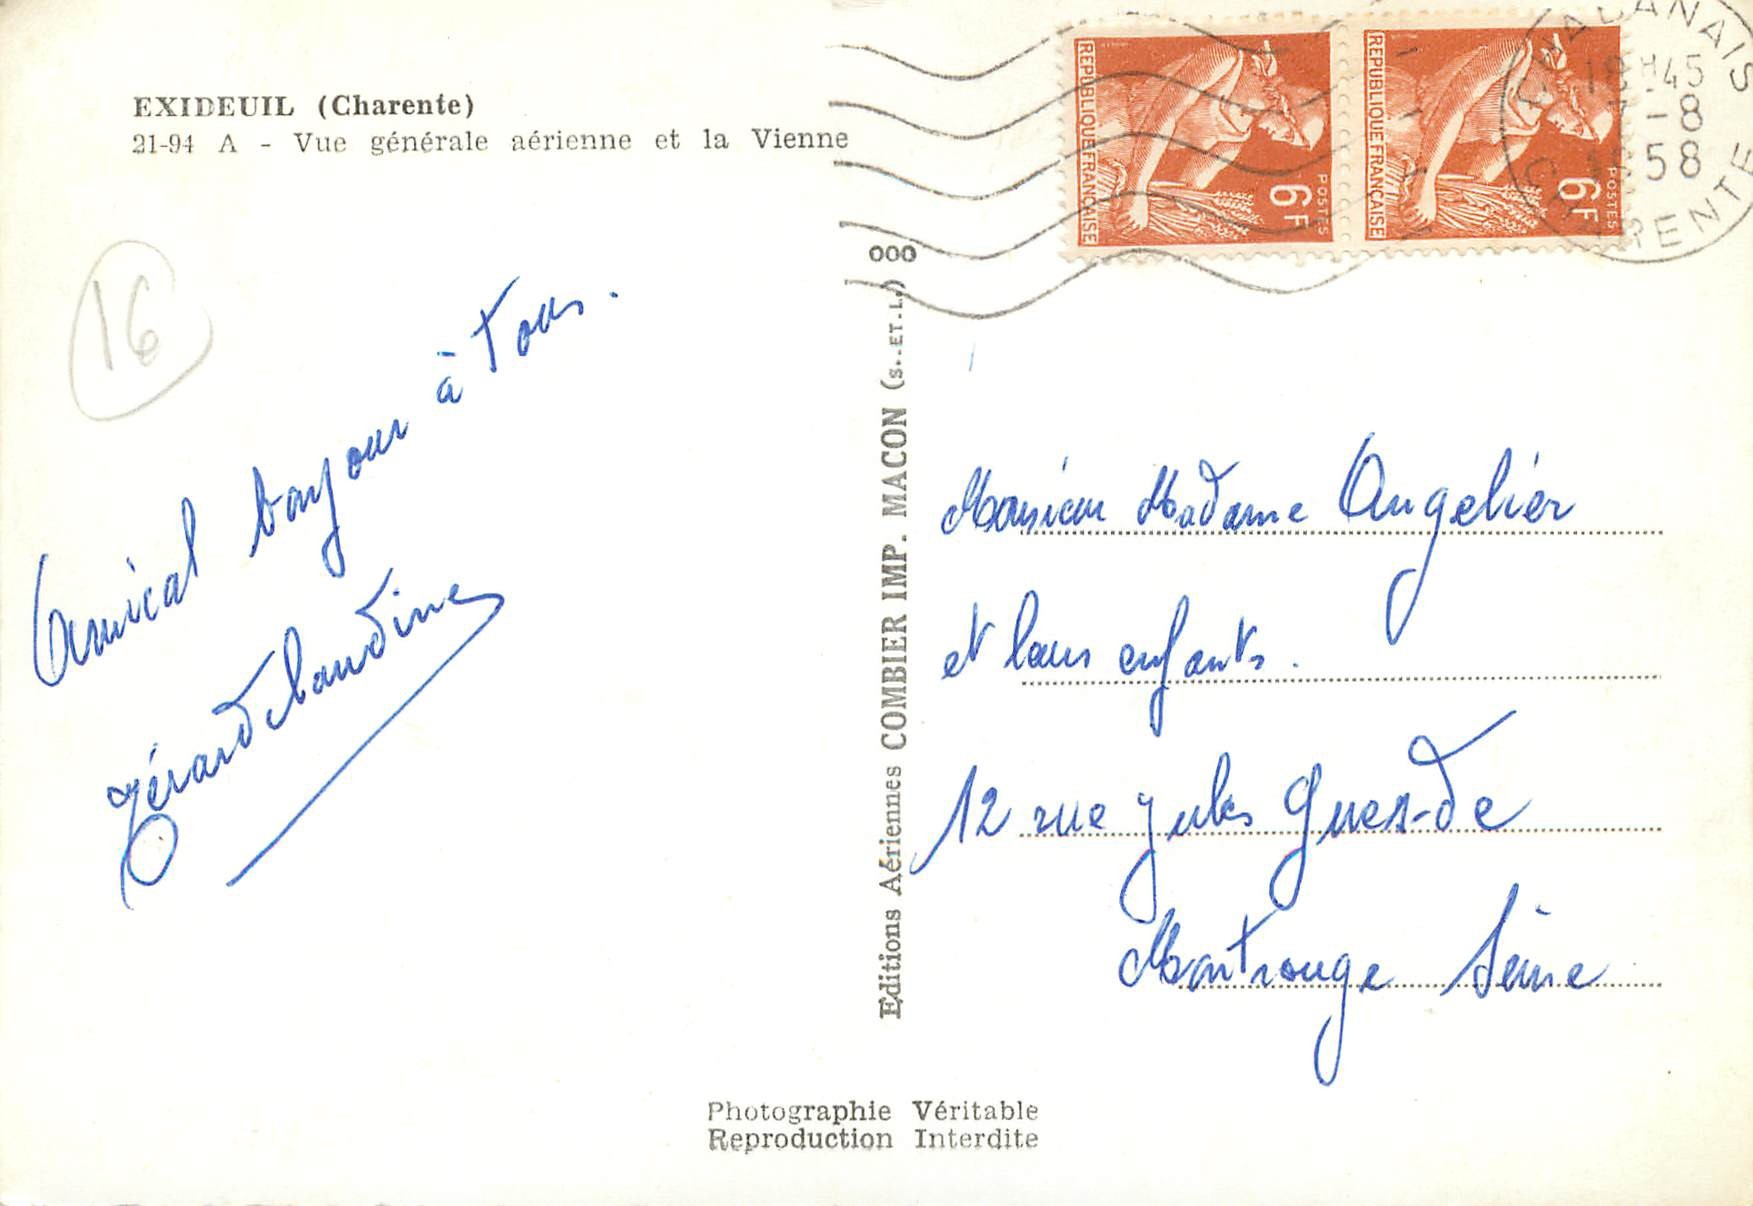 EXIDEUIL (Charente)
21-94 A - Vue générale aérienne et la Vienne
16
Amical bonjour à tous.
Gérard Claudine
000
Editions Aériennes COMBIER IMP. MACON (S.-ET-L.)
REPUBLIQUE FRANÇAISE
POSTES
6F
REPUBLIQUE FRANÇAISE
POSTES
6F
CHABANAIS
18H45
7-8
1958
CHARENTE
Monsieur Madame Angelier
et leurs enfants.
12 rue Jules Guesde
Montrouge Seine
Photographie Véritable
Reproduction Interdite